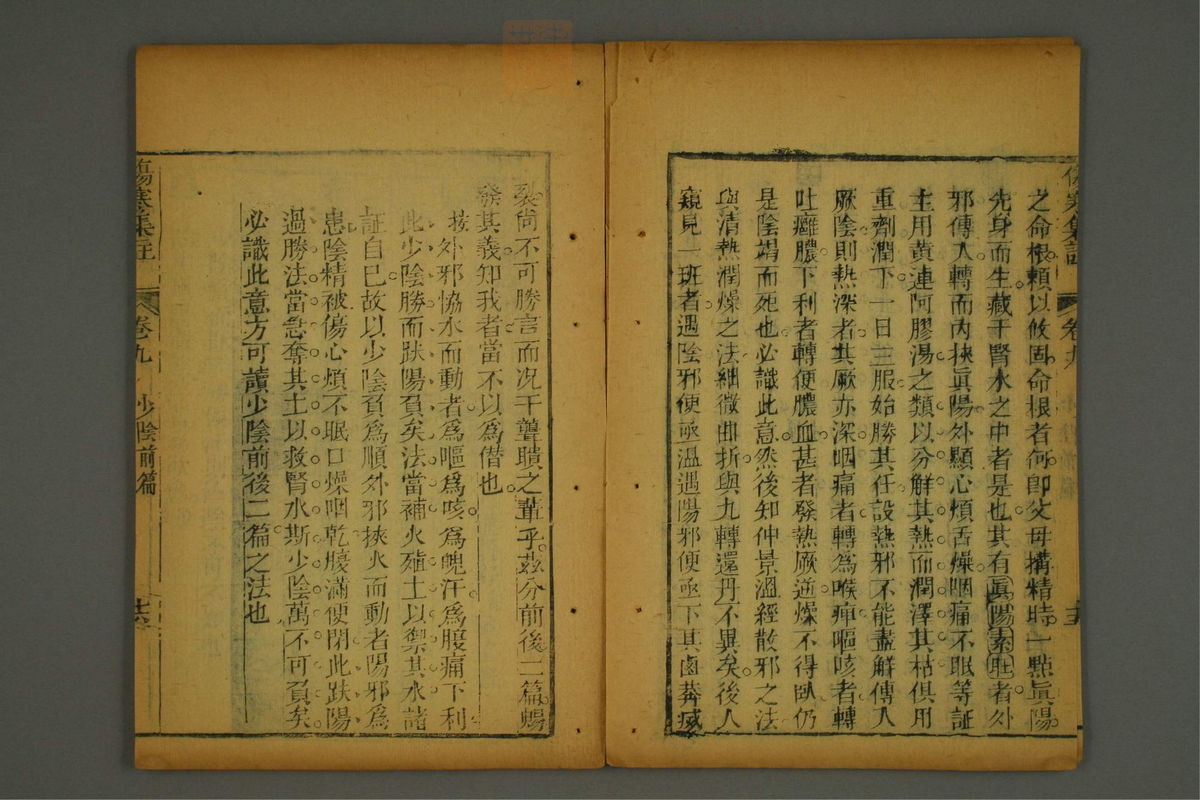 傷寒集註 卷九 十三
之命根賴以攸固命根者何卽父母搆精時一點眞陽
先身而生藏于腎水之中者是也其有眞陽素旺者外
邪傳入轉而內挾眞陽外顯心煩舌燥咽痛不眠等証
主用黃連阿膠湯之類以分解其熱而潤澤其枯俱用
重劑潤下一日三服始勝其任設熱邪不能盡解傳入
厥陰則熱深者其厥亦深咽痛者轉爲喉痺嘔咳者轉
吐癰膿下利者轉便膿血甚者發熱厥逆燥不得臥仍
是陰竭而死也必識此意然後知仲景溫經散邪之法
與清熱潤燥之法細微曲折與九轉還丹不異矣後人
窺見一班者遇陰邪便亟溫遇陽邪便亟下其鹵莽滅
裂尙不可勝言而况于聾聵之輩乎茲分前後二篇暢
發其義知我者當不以爲僭也
按外邪協水而動者爲嘔爲咳爲魄汗爲腹痛下利
此少陰勝而趺陽負矣法當補火殖土以禦其水諸
証自已故以少陰負爲順外邪挾火而動者陽邪爲
患陰精被傷心煩不眠口燥咽乾腹滿便閉此趺陽
過勝法當急奪其土以救腎水斯少陰萬不可負矣
必識此意方可讀少陰前後二篇之法也
傷寒集註 卷九 少陰前篇